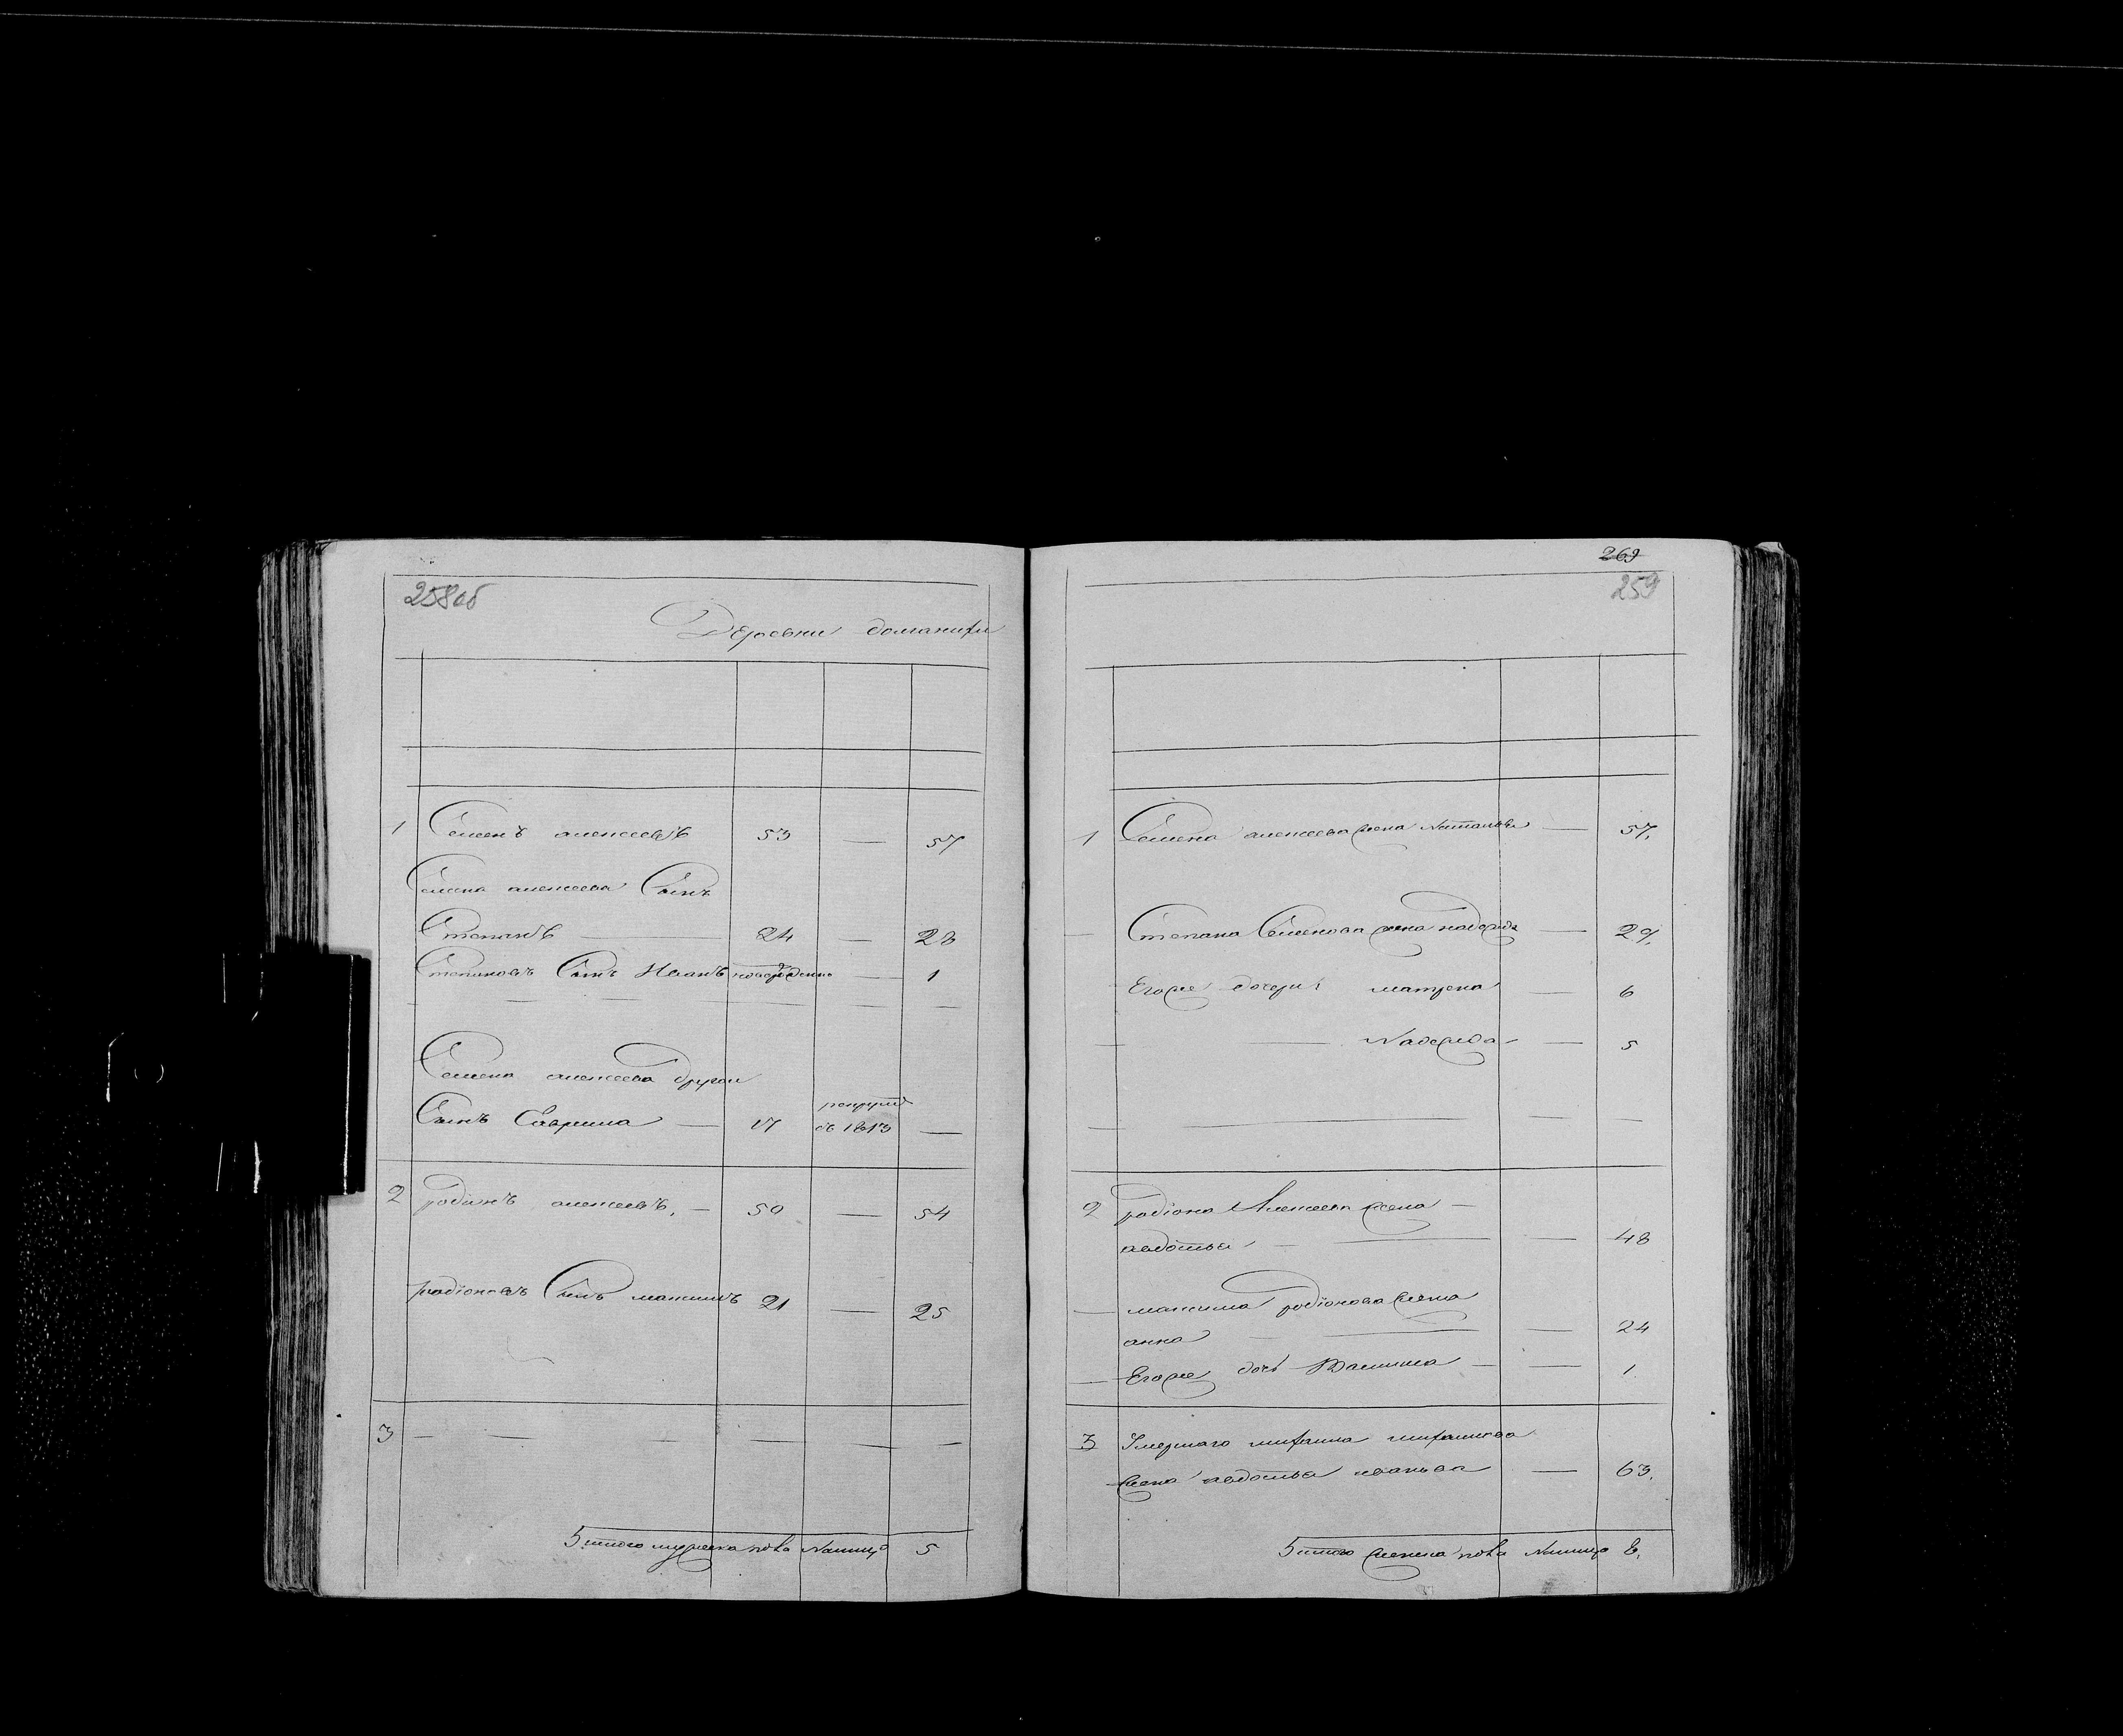 258об
Деревни доманихи
1 Семенъ алексеевъ 53 — 57
Семена алексеева Сынъ
Степанъ — 24 — 28
Степановъ Сынъ Иванъ новорожденъ — 1
Семена алексеева другой
Сынъ Гаврила — 17 рекрут в 1813 —
2 родионъ алексеевъ. — 50 — 54
радіоновъ Сынъ максимъ 21 — 25
3 — — — — — —
Итого мужеска пола Налицо 5
269
259
1 Семена алексеева жена Наталья — 57.
— Степана Семенова жена надежда — 29.
Егоже дочери матрена — 6
— — Надежда — — 5
— — — —
2 радіона Алексеева жена —
авдотья — — — 48
— максима родіонова жена
анна — — — 24
— Егоже дочь — — 1.
3 Умершаго михаила михаилова
жена авдотья иванова — 63.
Итого женска пола Налицо 8.